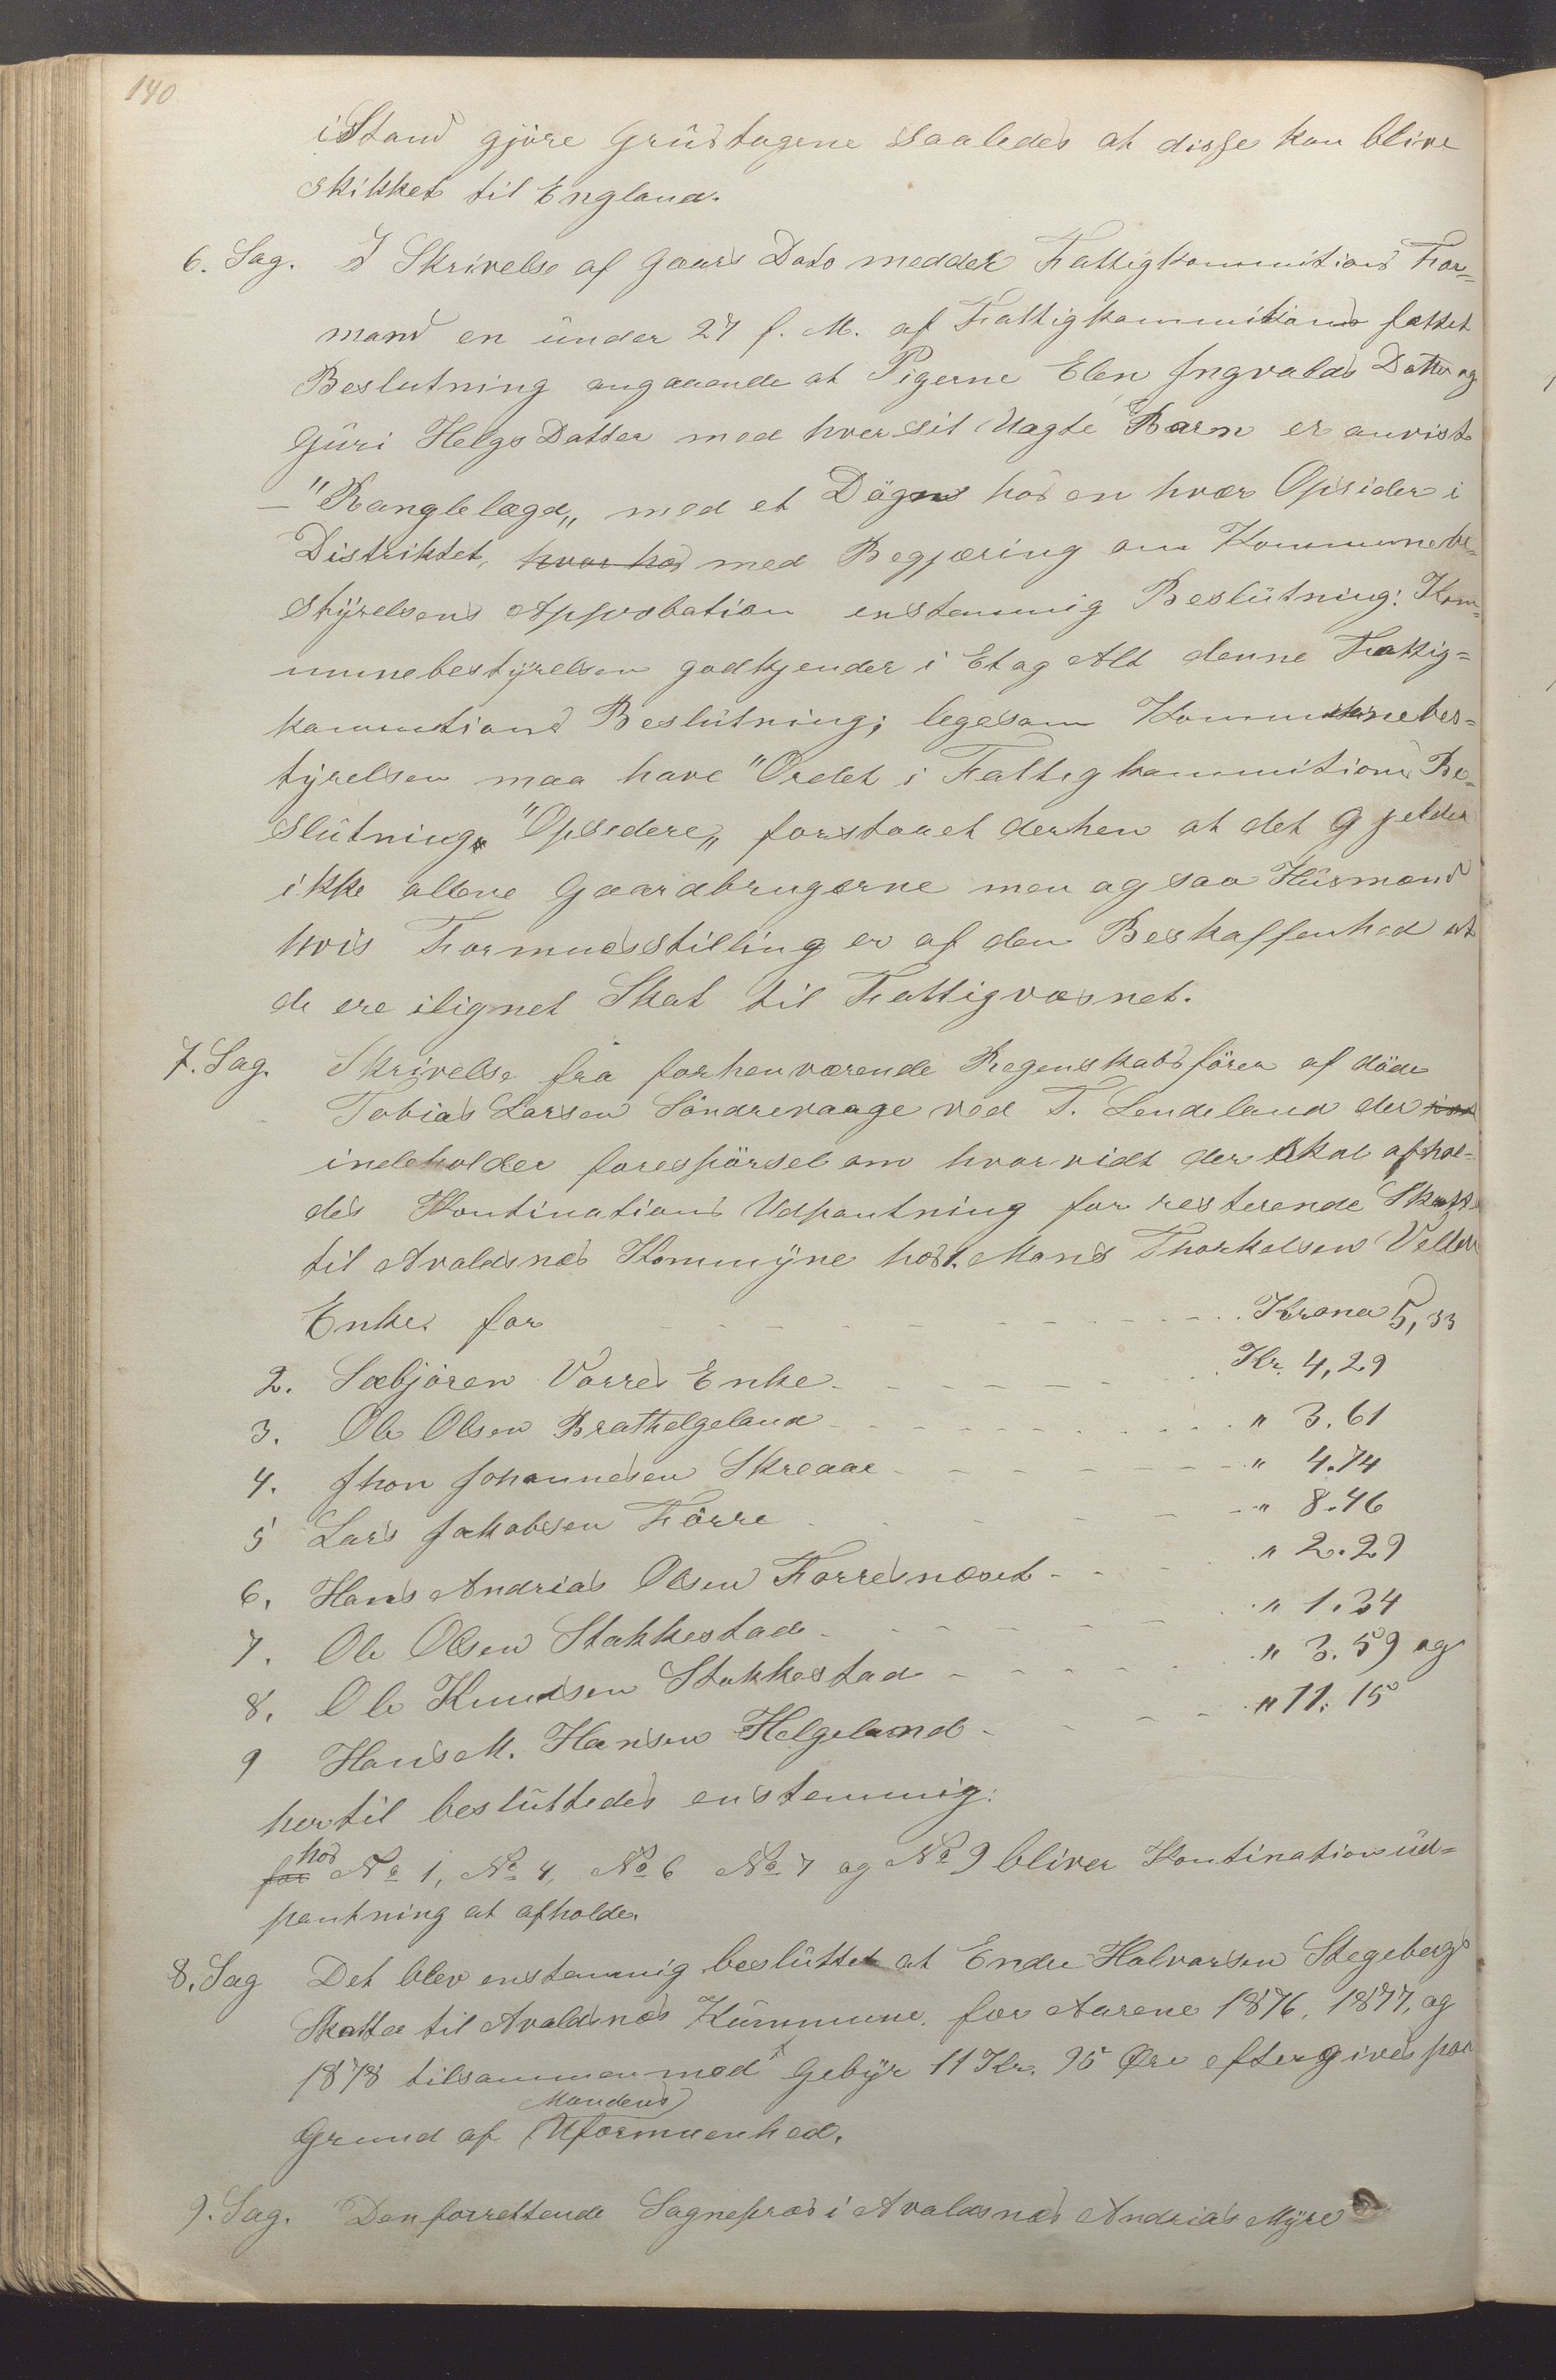 140
iStand gjöre Grüstagene saaledes at disse kan blive
skikket til England.
6. Sag. I Skrivelse af Gaars Dato meddelt Fattigkommitions For-
mand en ünder 27 f. M. af Fattigkommitions fattet
Beslutning angaaende at Pigerne Elen Ingvalds Datter og
Güri Helgs Datter med hver sit Uægte Barn er anvist
- "Ranglelægd„ med et Dögns hos en hvær Opsider i
Distriktet, hvor hos med Begjæring om Kommunebe-
stÿrelsens Approbation enstemmig Beslütning: Kom-
munebestÿrelsen godkjender i Et og Alt denne Fattig-
kommitions Beslütning; legesom Kommunebes-
tÿrelsen maa have "Ordet i Fattigkommitions Be-
slütning "Opsidere„ forstaaet derhen at det gjelder
ikke allene Gaardbrugerne men ogsaa Hüsmænd
hvis Formuesstilling er af den Beskaffenhed at
de ere ilignet Skat til Fattigvæsnet.
7. Sag. Skrivelse fra forhenværende Regenskabsförer af döde
Tobias Larsen Söndrevaage ved T. Lendeland der
indeholder forespörsel om hvorvidt der skal afhol-
des Kontinations Udpantning for resterende Skatte
til Avaldsnes Kommÿne hos 1. Mons Thorkelsen Velle
Enke. for - - - - - - - - - - - Kroner 5,33
2. Sæbjören Vorres Enke - - - - - - Kr. 4,29
3. Ole Olsen Brathelgeland - - - - - - " 3.61
4. Jhon Johannesen Skreaae - - - - - - " 4.74
5 Lars Jakobsen Förre - - - - - " 8.46
6. Hans Andrias Olsen Förresnæset - - - " 2.29
7. Ole Olsen Stakkestad - - - - - - " 1.34
8. Ole Knudsen Stakkestad - - - - - " 3.59 og
9 Hans M. Hansen Helgeland - - - - " 11.15
hertil beslüttedes enstemmig:
hos
for No 1, No 4, No 6 No 7 og No 9 bliver Kontinationsüd-
pantning at afholde.
8. Sag Det blev enstemmig beslüttet at Endre Halvorsen Stegebergs
Skatter til Avaldsnes Kümmune. for Aarene 1876, 1877, og
1878 tilsammen med Gebÿr 11 Kr. 95 Øre eftergives paa
Mandens
Grund af Uformuenhed.
9. Sag. Den forrettende Sagnepræs i Avaldsnes Andrias Mÿre